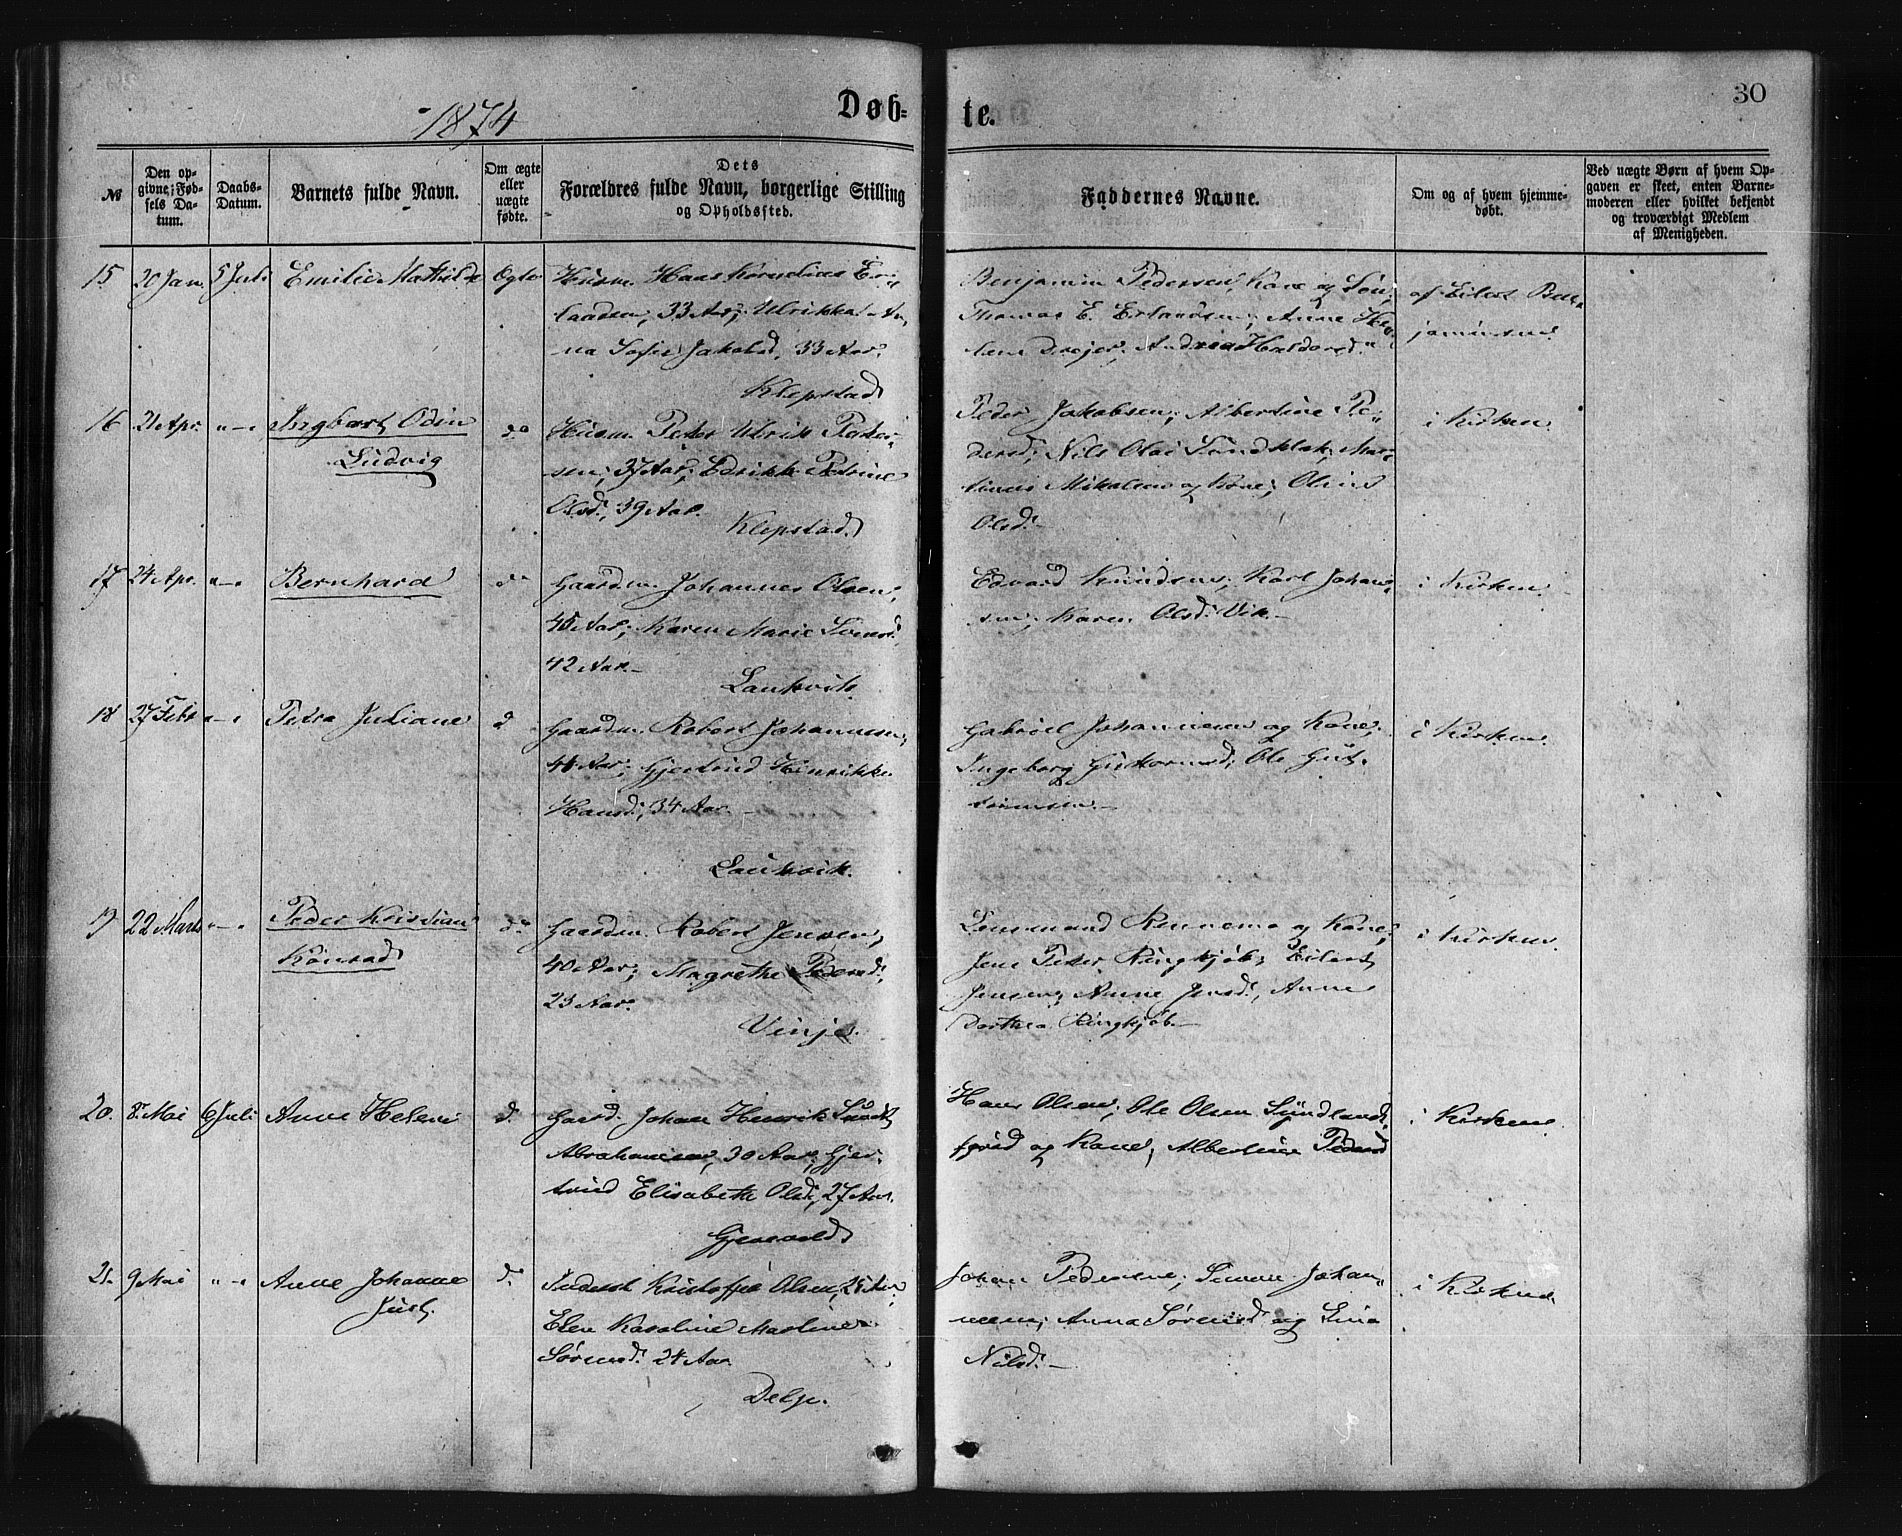 1874
Døb=
te.
30
№
Den op-
givne; Fød-
sels Da-
tum.
Daabs-
Datum.
Barnets fulde Navn.
Om ægte
eller
uægte
fødte.
Dets
Forældres fulde Navn, borgerlige Stilling
og Opholdssted.
Faddernes Navne.
Om og af hvem hjemme-
døbt.
Ved uægte Børn af hvem Op-
gaven er skeet, enten Barne-
moderen eller hvilket bekjendt
og troværdigt Medlem
af Menigheden.
15 20 Jan. 5 Juli Emilie Mathilde Ægte Husm. Hans Kornelius Er-
landsen, 33 Aar; Ulrikka An-
na Sofie Jakobsd, 33 Aar.
Klepstad
Benjamin Pedersen, Kone og Søn;
Thomas E. Erlandsen; Anne He-
lene Drejer; Andrea Haldorsd.
af Eilert Ben-
jaminsen
16 21 Apr. "—" Ingbart Odin
Ludvig
do Husm. Peter Ulrik Peter-
sen, 37 Aar; Edrikke Petrine
Olsd., 39 Aar.
Klepstad.
Peder Jakobsen; Albertine Pe-
dersd; Nils Olai Sundklak; Mar-
tinus Mikalsen og Kone; Oline
Olsd.
i Kirken.
17 24 Apr. "—" Bernhard do Gaardm. Johannes Olsen,
45 Aar; Karen Marie Iversd.
42 Aar.—
Laukvik.
Edvard Knudsen; Karl Johan-
sen; Karen Olsd. Vik.—
i Kirken.
18 27 Febr "—" Petra Juliane d Gaardm. Robert Johannesen,
Aar; Gjertrud Henrikke
Hansd; 34 Aar.—
Laukvik.
Gabriel Johannesen og Kone;
Ingeborg Guttormsd; Ole Gut-
tormsen.—
i Kirken.
19 22 Marts "—" Peder Kristian
Konrad
do Gaardm. Robert Jensen,
40 Aar; Magrethe Pedersd.
23 Aar.
Vinje.
Lensmand Rennemo og Kone;
Jens Peter Ringkjøb; Eilert
Jensen; Anne Jensd; Anne
Dorthea Ringkjøb.—
i Kirken.
20. 8. Mai 6 Juli Anne Helene d. Gaard. Johan Henrik
Abrahamsen, 30 Aar; Gjer-
trud Elisabeth Olsd, 27 Aar.
Hans Olsen; Ole Olsen Sundlands-
fjord og Kone; Albertine Pedersd
i Kirken.
21. 9 Mai "—" Anne Johanne
Just.
d. Inderst Kristoffer Olsen, Aar
Elen Karoline Martine
Sørensd. 24 Aar
Delp.
Johan Pedersen; Simon Johan-
nesen; Anna Sørensd og Lina
Nilsd.—
i Kirken.